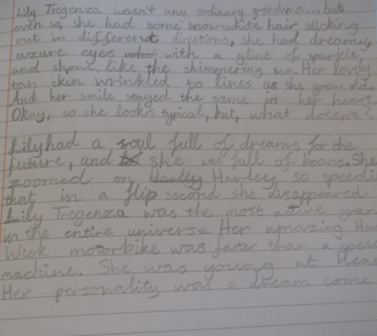 Lily Tregenza wasn't any ordinary grandma... but
even so she had some snow-white hair sticking
out in different directions, she had dreamy,
azure eyes with a glint of sparkle
and shone like the shimmering sea. Her lovely
tan skin wrinkled to lines as she grew old.
And her smile stayed the same in her heart.
Okay, so she looks typical, but, what doesn't?
Lily had a soul full of dreams for the
future, and she was full of beans. She
zoomed on Harley, so speedi
that in a flip second she disappeared.
Lily Tregenza was the most active gran
in the entire universe. Her amazing Ha
Wick motorbike was faster than a
machine. She was young at
Her personality was a dream come